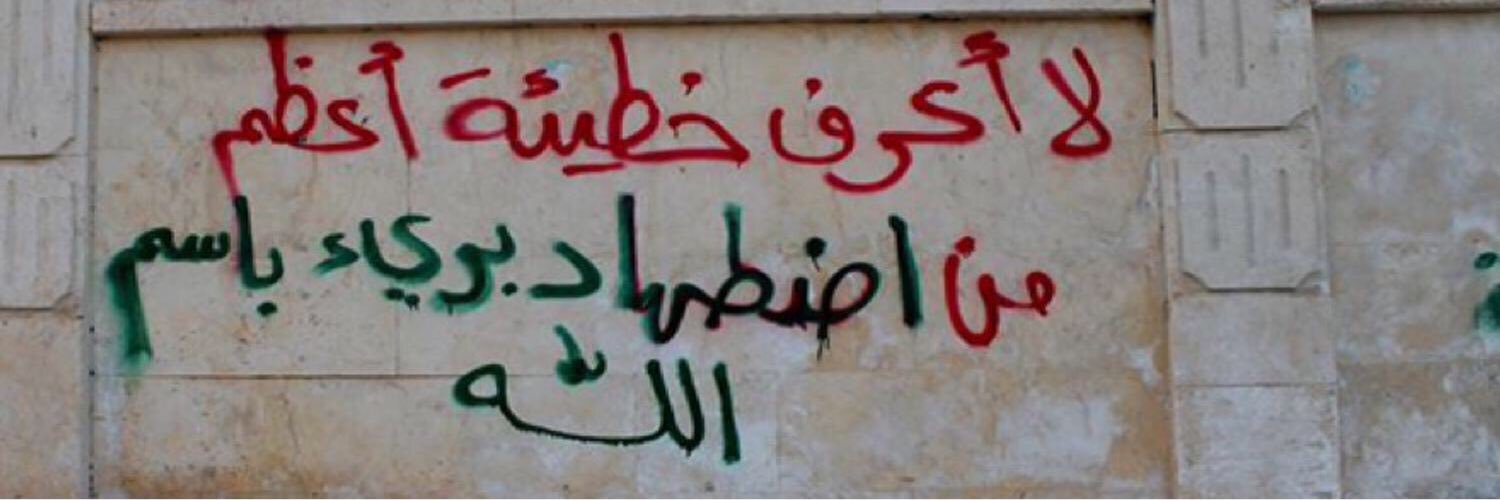 لا أعرف خطيئة أعظم
من اضطهاد بريء باسم
الله